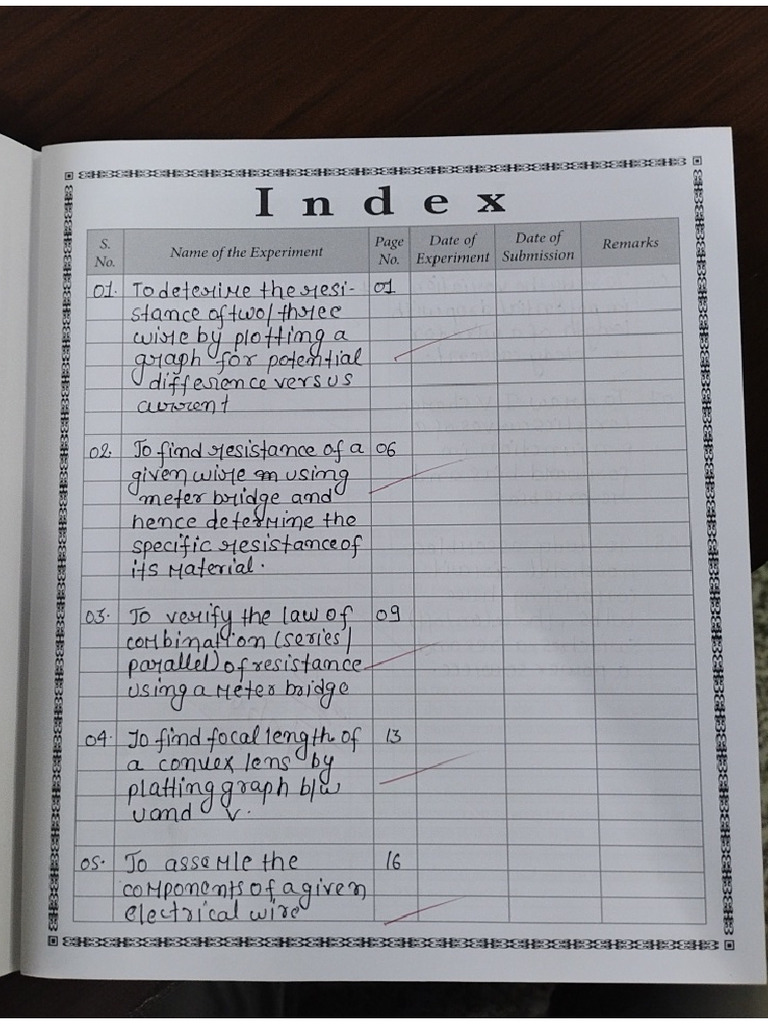 Index
S. No. Name of the Experiment Page No. Date of Experiment Date of Submission Remarks
01. To deterime the resi- 01
stance of two/three
wire by plotting a
graph for potential
difference versus
current
02. To find resistance of a 06
given wire using
meter bridge and
hence determine the
specific resistance of
its material.
03. To verify the law of 09
combination (series/
parallel) of resistance
using a meter bridge
04. To find focal length of 13
a convex lens by
platting graph b/w
u and v.
05. To assemle the 16
components of a given
electrical wire